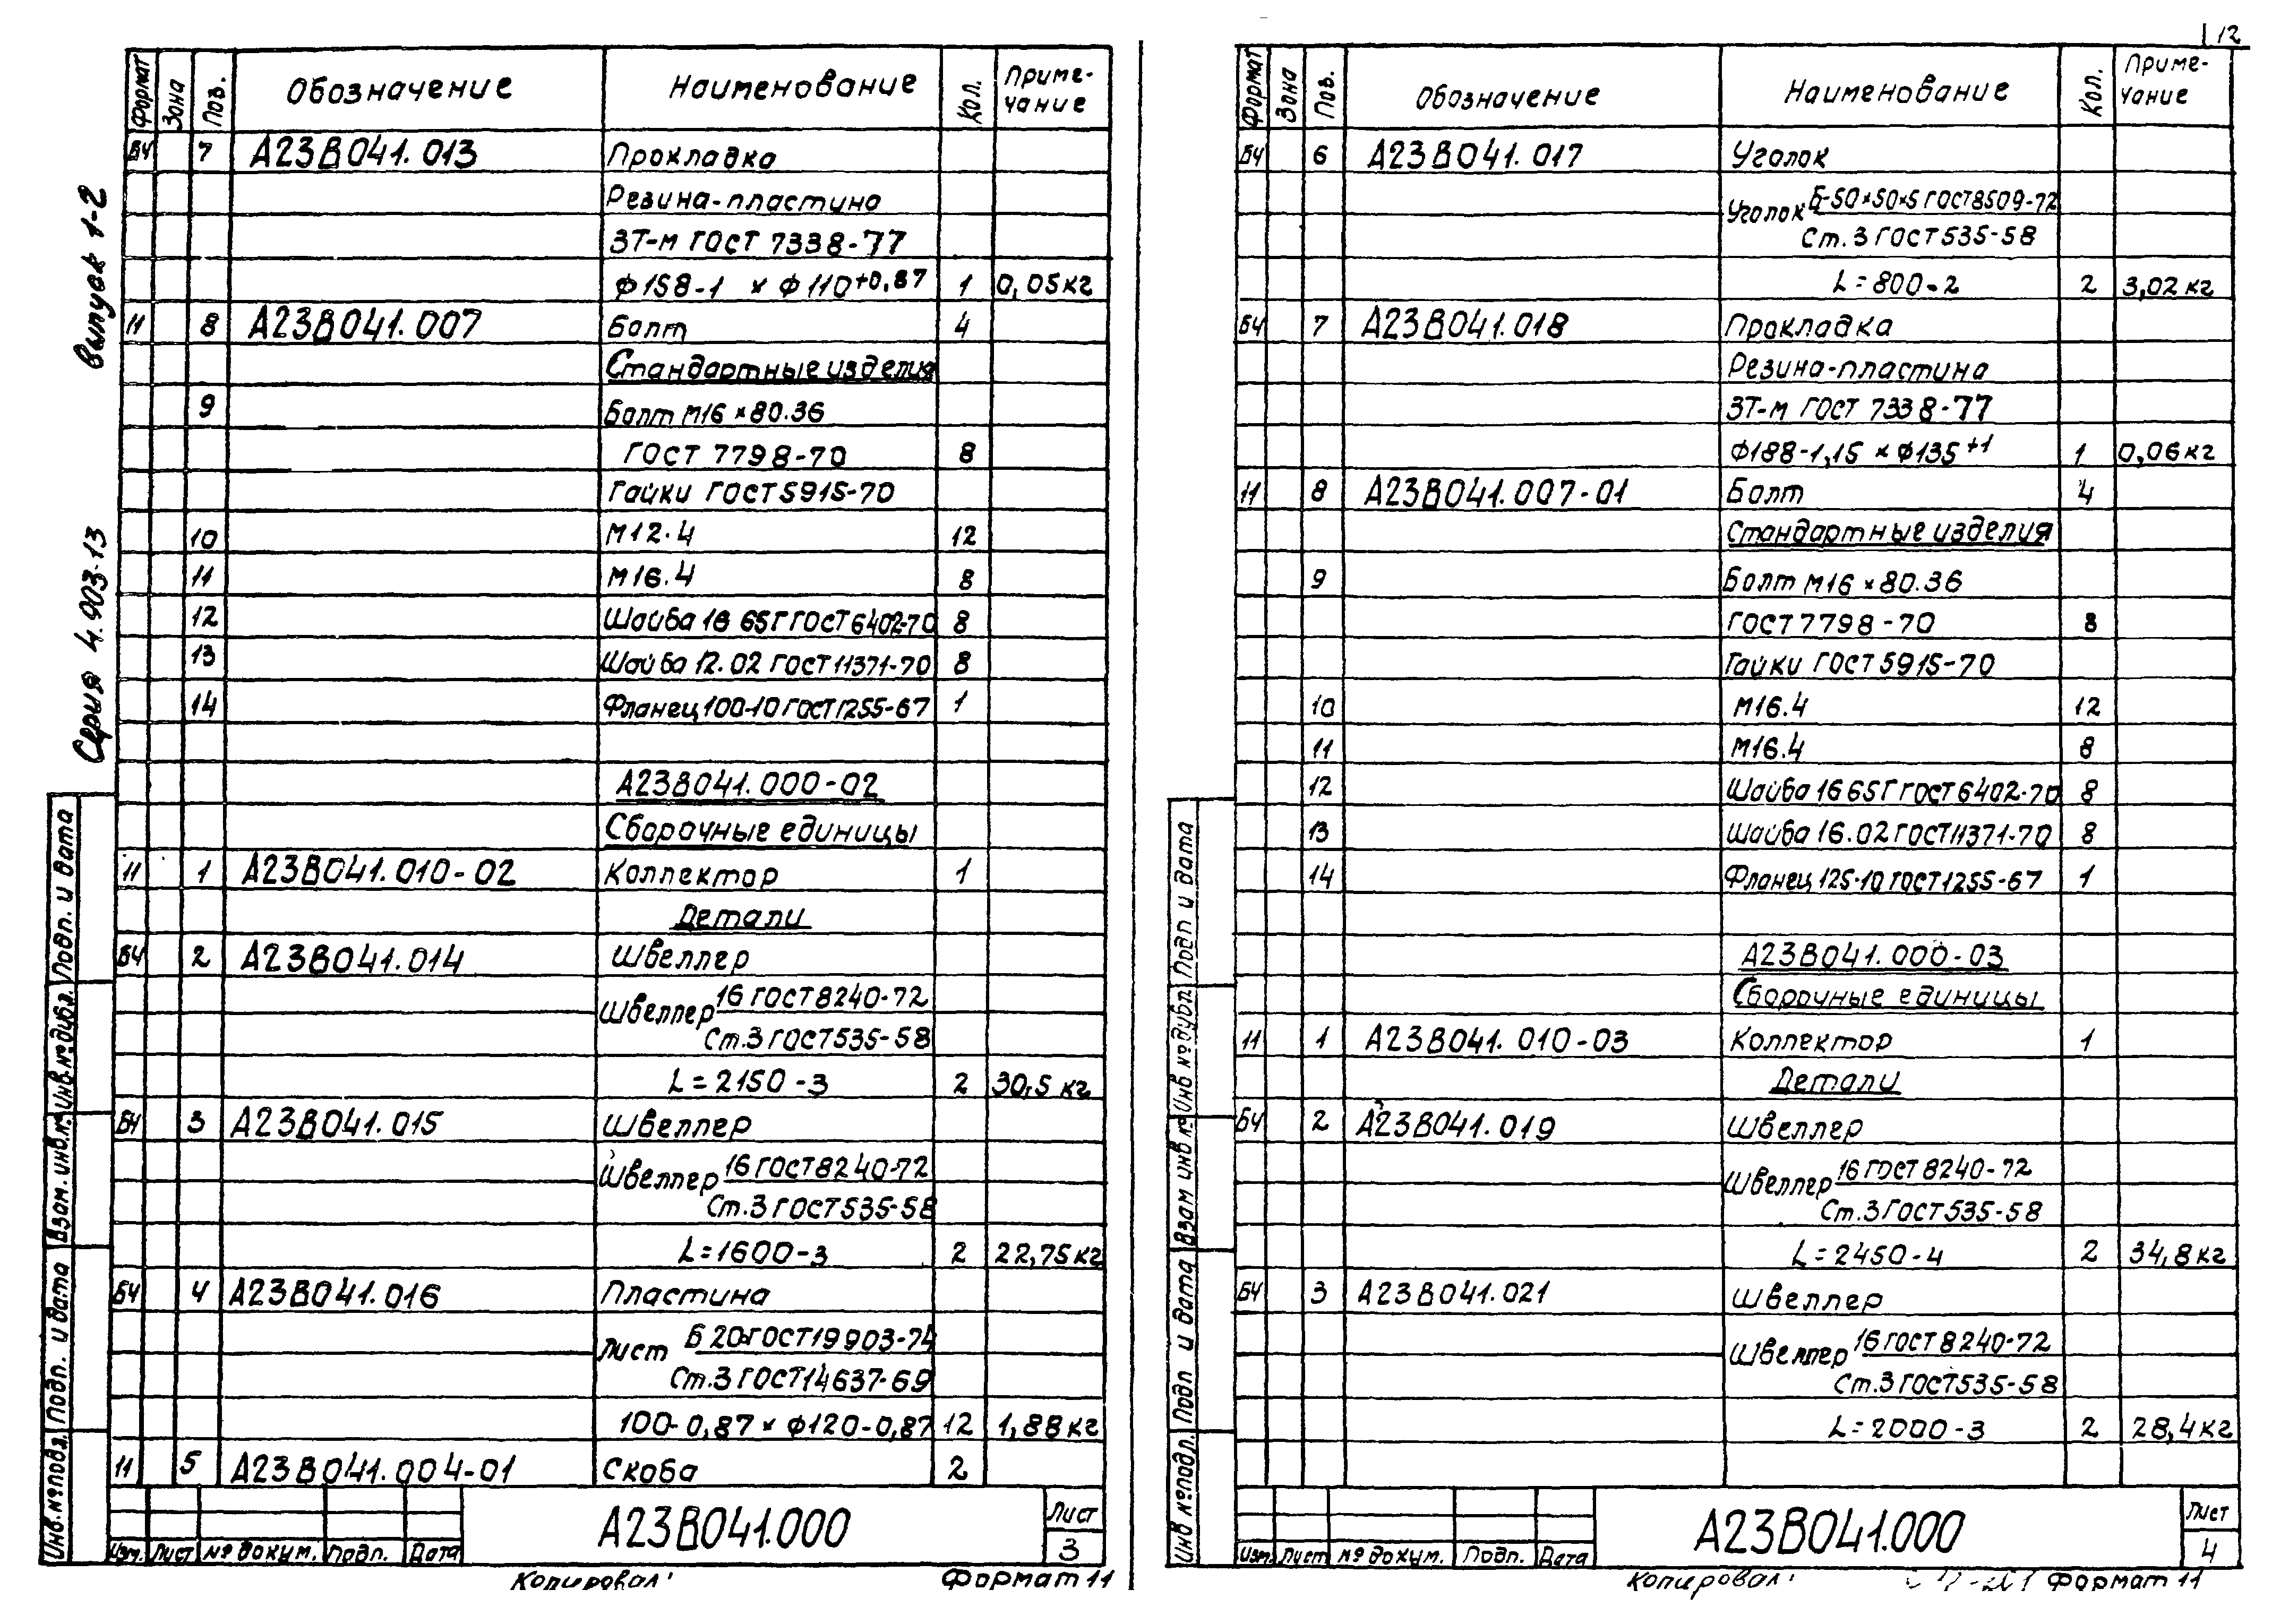 12
Серия 4.903-13 Выпуск 1-2
Формат Зона Поз. Обозначение Наименование Кол. Приме-
чание
БЧ 7 А23В041.013 Прокладка
Резина-пластина
3Т-м ГОСТ 7338-77
ф158-1 × ф110+0,87 1 0,05кг
11 8 А23В041.007 Болт 4
Стандартные изделия
9 Болт М16×80.36
ГОСТ 7798-70 8
Гайки ГОСТ5915-70
10 М12.4 12
11 М16.4 8
12 Шайба 16 65Г ГОСТ6402-70 8
13 Шайба 12.02 ГОСТ11371-70 8
14 Фланец100-10 ГОСТ1255-67 1
А23В041.000-02
Сборочные единицы
11 1 А23В041.010-02 Коллектор 1
Детали
БЧ 2 А23В041.014 Швеллер
Швеллер 16 ГОСТ8240-72
Ст.3 ГОСТ535-58
L=2150-3 2 30,5кг
БЧ 3 А23В041.015 Швеллер
Швеллер 16 ГОСТ8240-72
Ст.3 ГОСТ535-58
L=1600-3 2 22,75кг
БЧ 4 А23В041.016 Пластина
Лист Б 20 ГОСТ19903-74
Ст.3 ГОСТ14637-69
100-0,87 × ф120-0,87 12 1,88кг
11 5 А23В041.004-01 Скоба 2
Изм. Лист № докум. Подп. Дата
А23В041.000
Лист
3
Инв.№подл. Подп. и дата Взам.инв.№ Инв.№дубл. Подп. и дата
Копировал: Формат 11
Формат Зона Поз. Обозначение Наименование Кол. Приме-
чание
БЧ 6 А23В041.017 Уголок
Уголок Б-50×50×5 ГОСТ8509-72
Ст.3 ГОСТ535-58
L=800-2 2 3,02кг
БЧ 7 А23В041.018 Прокладка
Резина-пластина
3Т-м ГОСТ 7338-77
ф188-1,15 × ф135+1 1 0,06кг
11 8 А23В041.007-01 Болт 4
Стандартные изделия
9 Болт М16×80.36
ГОСТ7798-70 8
Гайки ГОСТ5915-70
10 М16.4 12
11 М16.4 8
12 Шайба 16 65Г ГОСТ6402-70 8
13 Шайба 16.02 ГОСТ11371-70 8
14 Фланец 125-10 ГОСТ1255-67 1
А23В041.000-03
Сборочные единицы
11 1 А23В041.010-03 Коллектор 1
Детали
БЧ 2 А23В041.019 Швеллер
Швеллер 16 ГОСТ8240-72
Ст.3 ГОСТ535-58
L=2450-4 2 34,8кг
БЧ 3 А23В041.021 Швеллер
Швеллер 16 ГОСТ8240-72
Ст.3 ГОСТ535-58
L=2000-3 2 28,4кг
Изм. Лист № докум. Подп. Дата
А23В041.000
Лист
4
Инв №подл. Подп и дата Взам инв № Инв №дубл. Подп и дата
Копировал: Формат 11